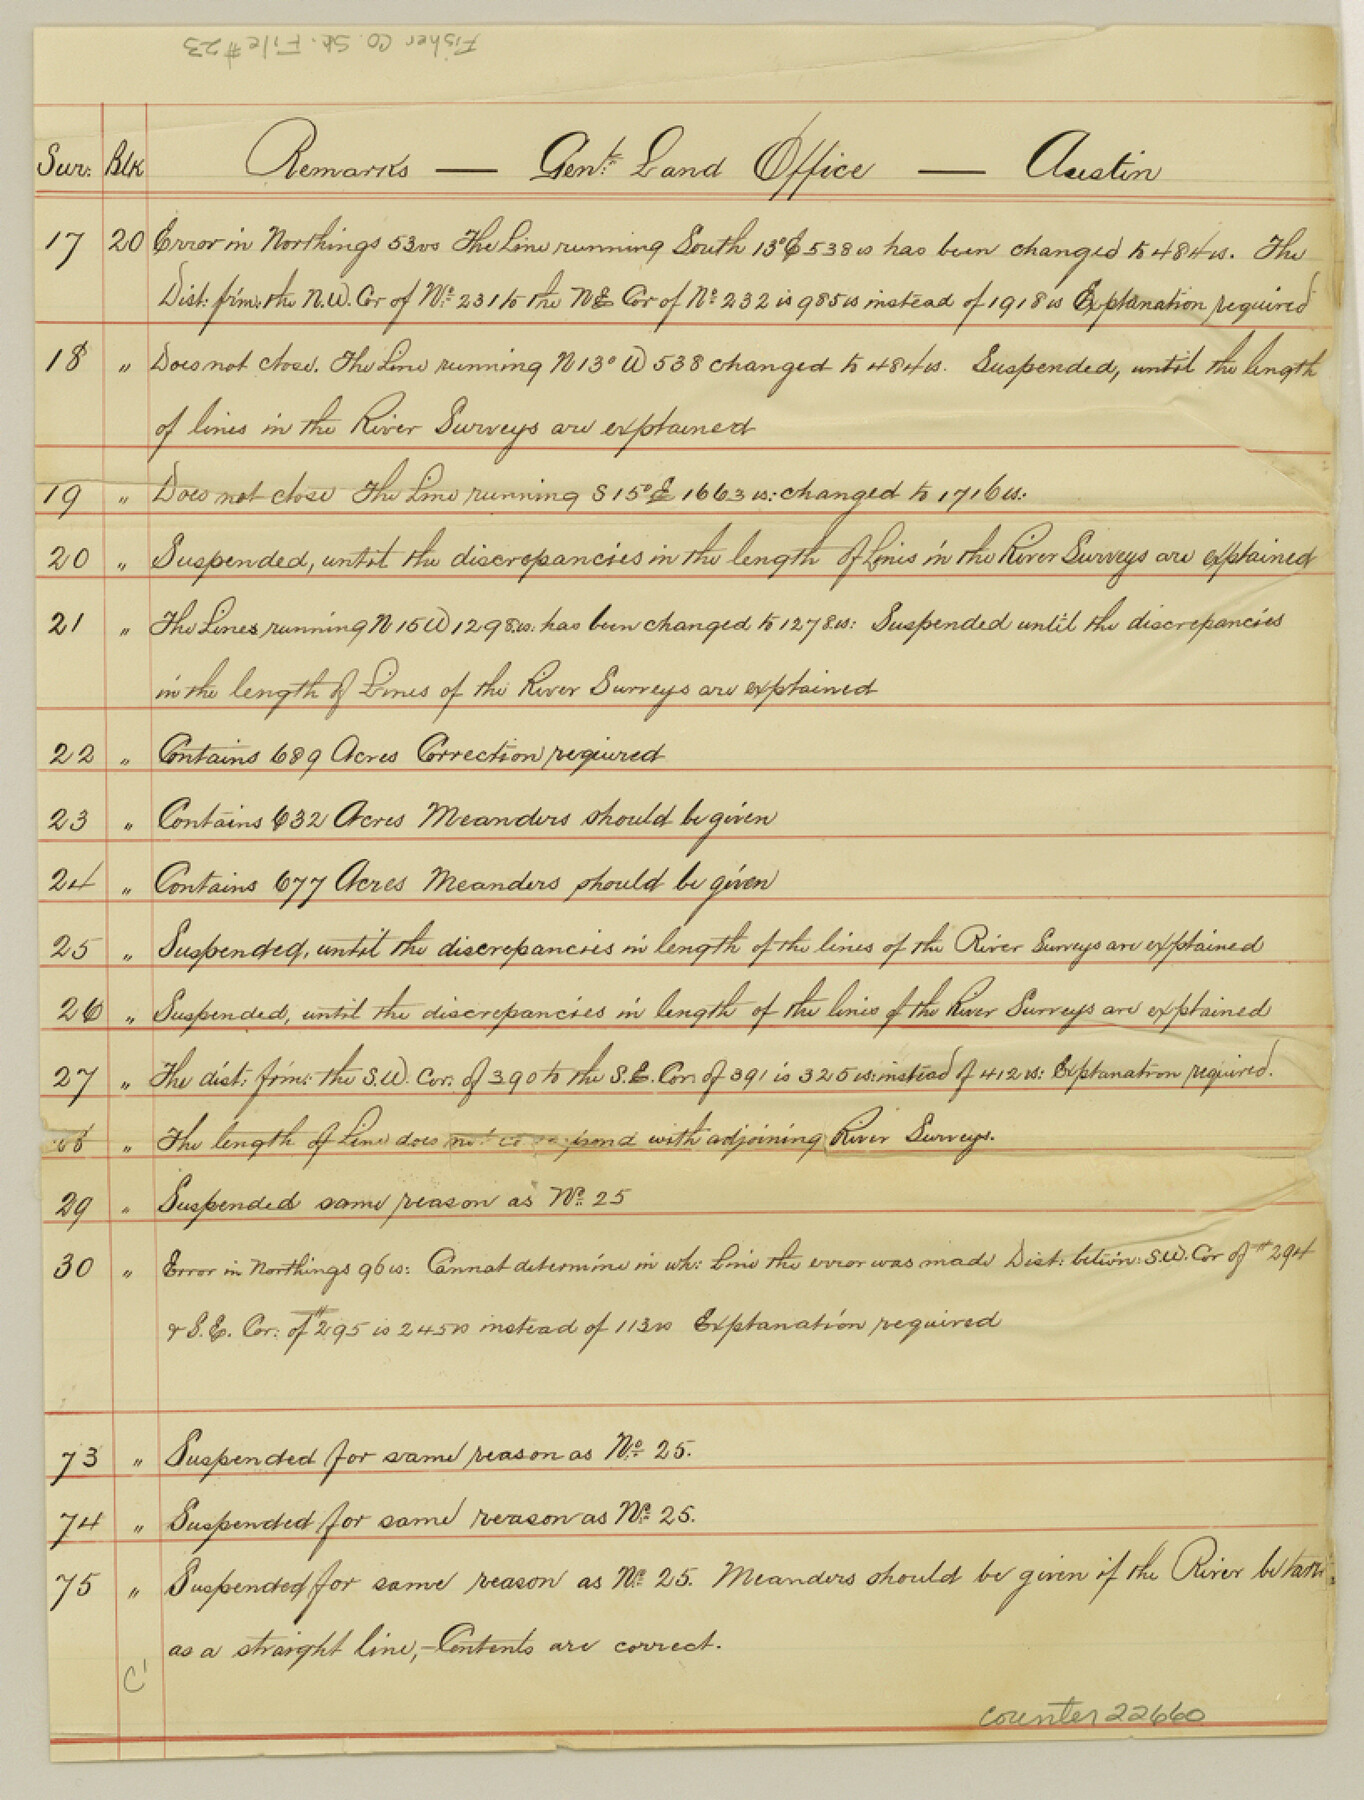 Fisher Co. Sk. File #23
Sur: Blk Remarks — Genl. Land Office — Austin
17 20 Error in Northings 53vs The Line running South 13° E 538vs has been changed to 484vs. The
Dist: frm: the N.W. Cor of No. 231 to the NE Cor of No. 232 is 985vs instead of 1918vs Explanation required
18 " Does not close. The Line running N 13° W 538 changed to 484vs. Suspended, until the length
of lines in the River Surveys are explained
19 " Does not close The Line running S 15° E 1663vs: changed to 1716vs.
20 " Suspended, until the discrepancies in the length of Lines in the River Surveys are explained
21 " The Lines running N 15 W 1298vs: has been changed to 1278vs: Suspended until the discrepancies
in the length of Lines of the River Surveys are explained
22 " Contains 689 Acres Correction required
23 " Contains 632 Acres Meanders should be given
24 " Contains 677 Acres Meanders should be given
25 " Suspended, until the discrepancies in length of the lines of the River Surveys are explained
26 " Suspended, until the discrepancies in length of the lines of the River Surveys are explained
27 " The dist: frm: the S.W. Cor: of 390 to the S.E. Cor: of 391 is 325vs: instead of 412vs: Explanation required.
28 " The length of Line does not correspond with adjoining River Surveys.
29 " Suspended same reason as No. 25
30 " Error in Northings 96vs: Cannot determine in wh: Line the error was made Dist: betwn: S.W. Cor of # 294
& S.E. Cor: of # 295 is 245vs instead of 113vs Explanation required
73 " Suspended for same reason as No. 25.
74 " Suspended for same reason as No. 25.
75 " Suspended for same reason as No. 25. Meanders should be given if the River be
as a straight line,- Contents are correct.
C'
counter 22660